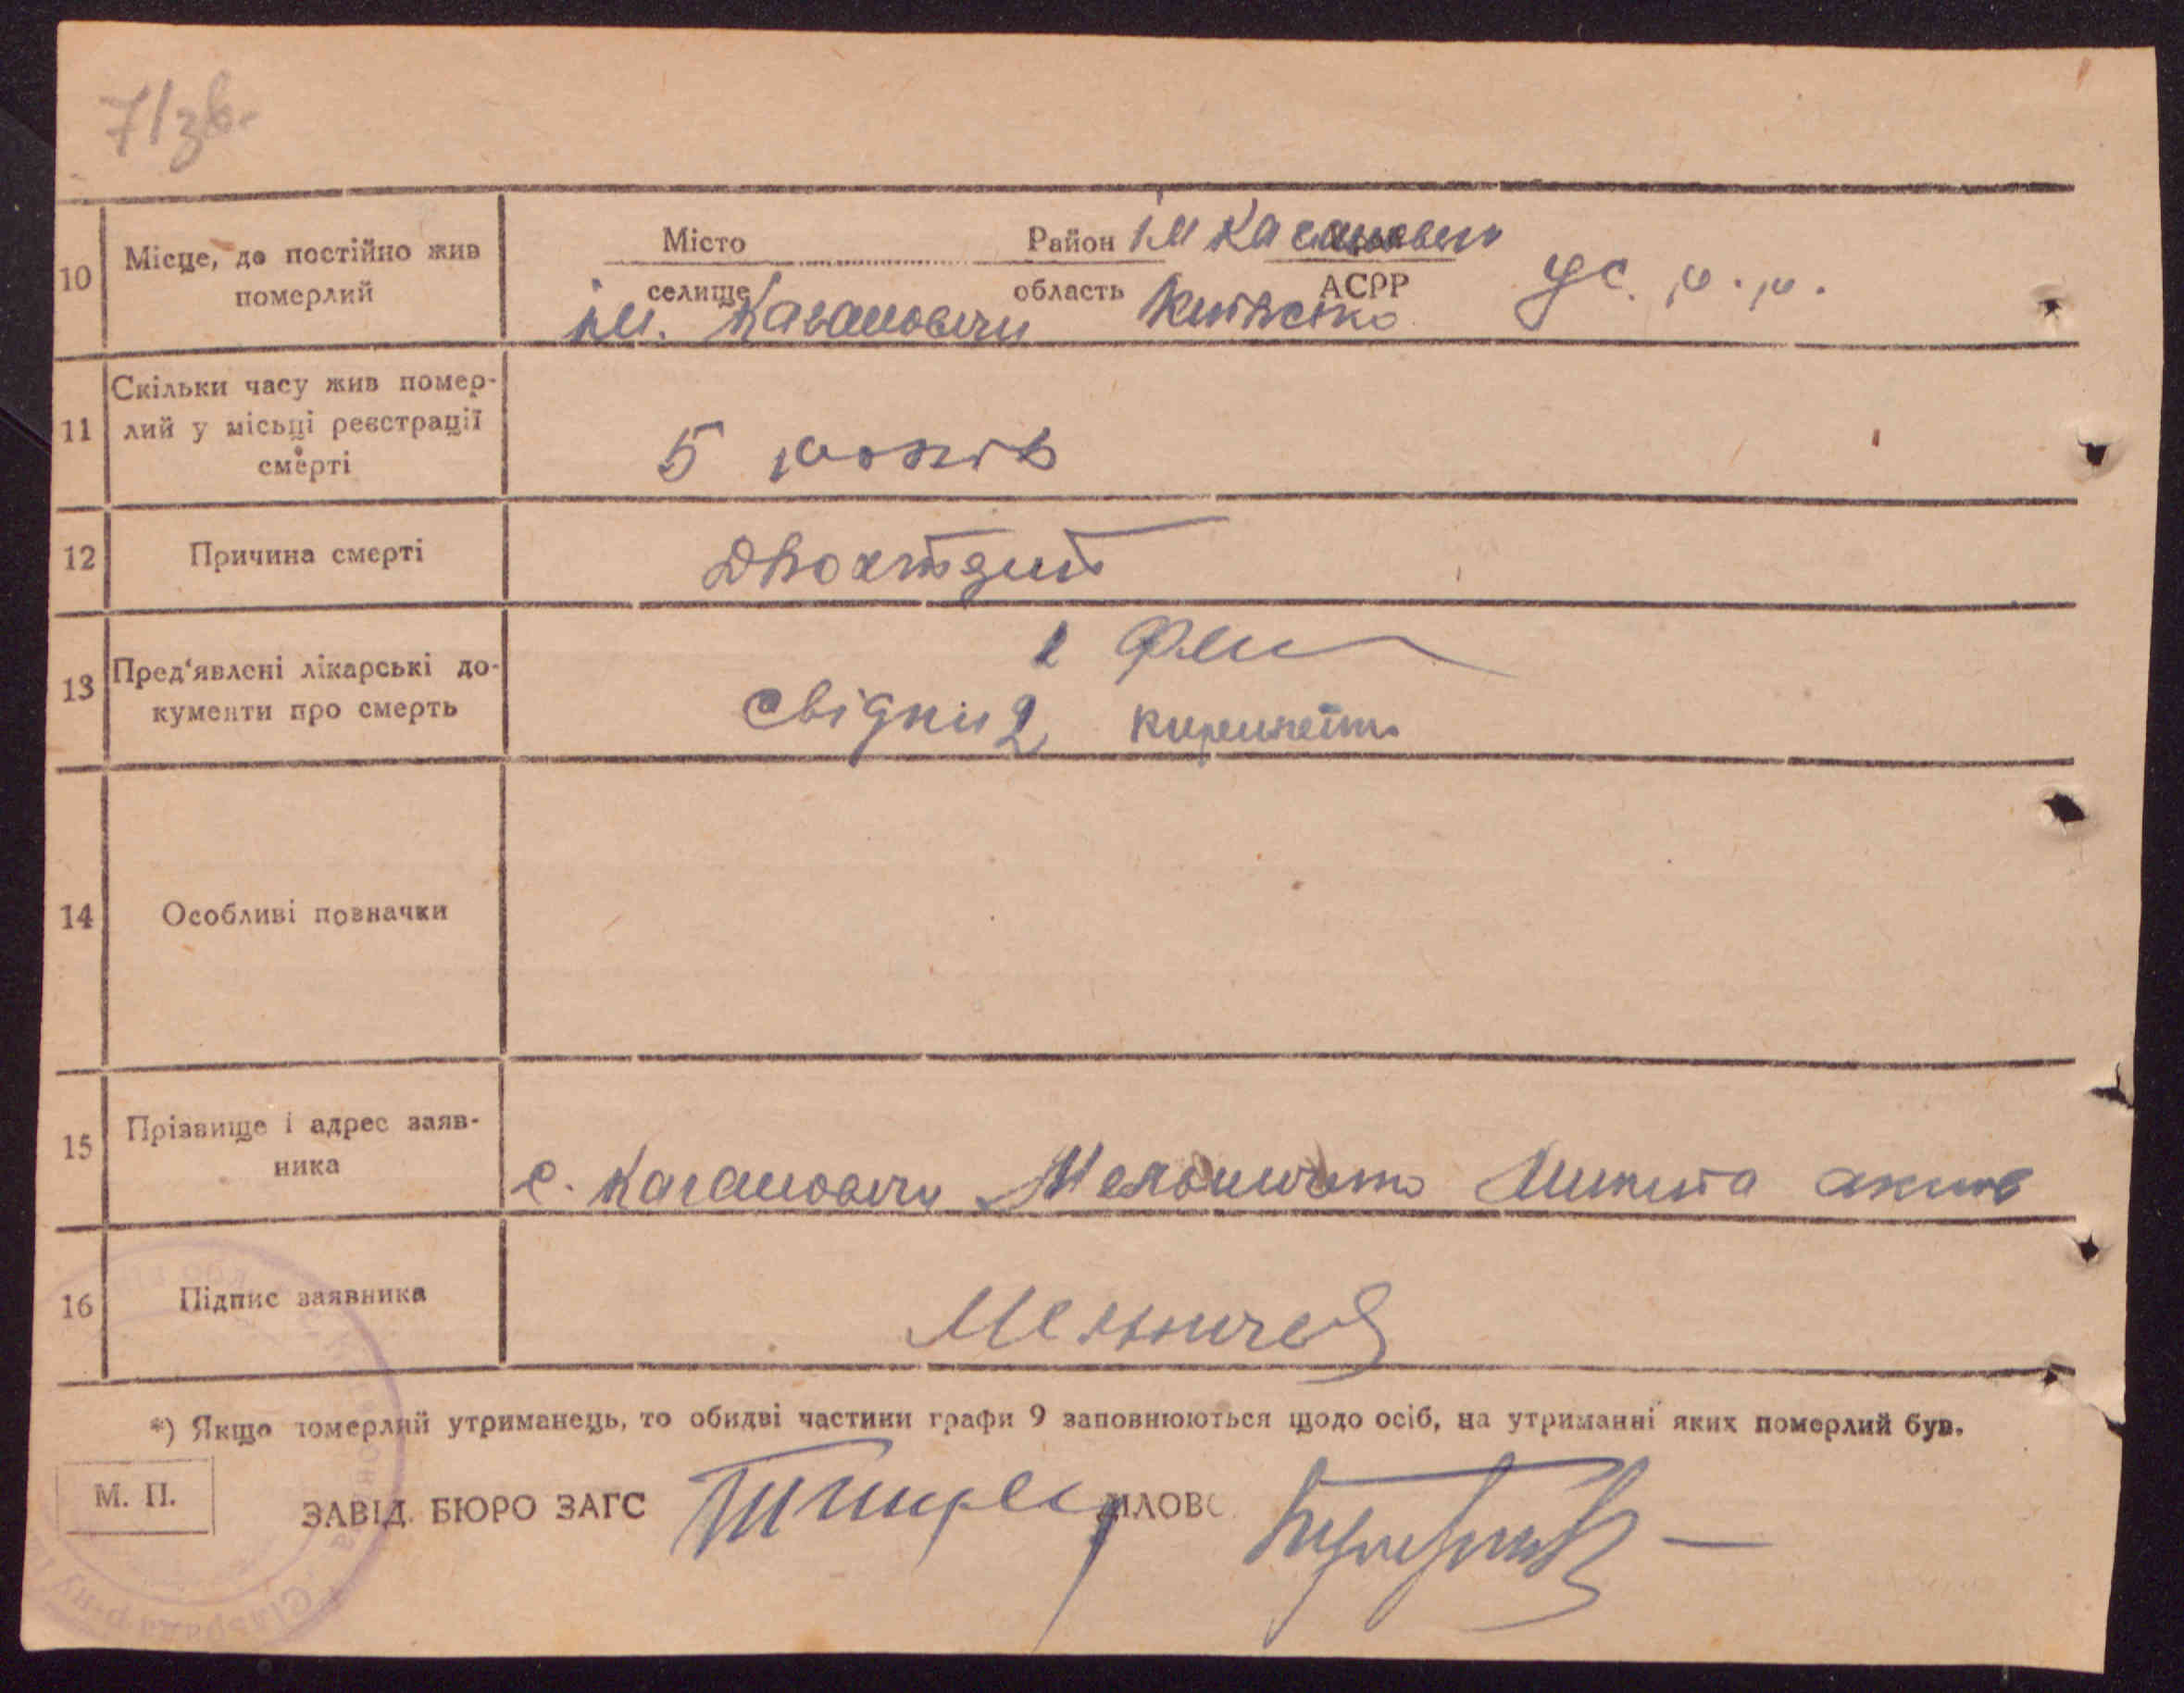 71зв.
10 Місце, де постійно жив померлий
Місто Район ім Кагановича
селище область АСРР УС.р.р.
ім. Кагановичи Київсько
11 Скільки часу жив помер-
лий у місьці реєстрації
смерті
5 років
12 Причина смерті
13 Пред'явлені лікарські до-
кументи про смерть
свідки 2
14 Особливі позначки
15 Прізвище і адрес заяв-
ника
с. Кагановичи Мельниченко Микита
16 Підпис заявника
Мельниче
*) Якщо померлий утриманець, то обидві частини графи 9 заповнюються щодо осіб, на утриманні яких померлий був.
М. П.
ЗАВІД. БЮРО ЗАГС ДІЛОВС